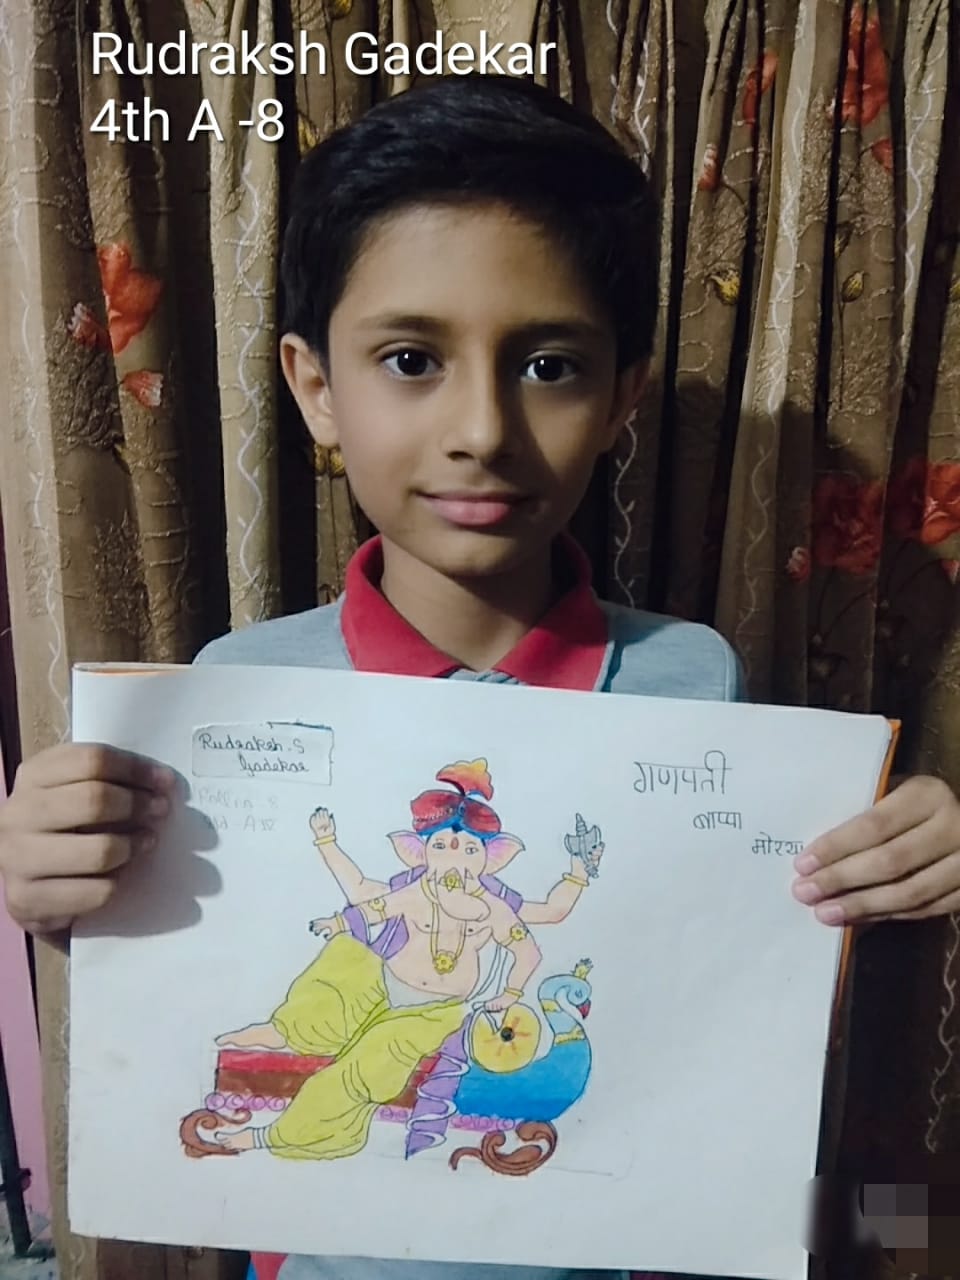 Rudraksh Gadekar
4th A -8
Rudraksh. S
Gadekar
Roll no - 8
Std - A IV
गणपती
बाप्पा
मोरया